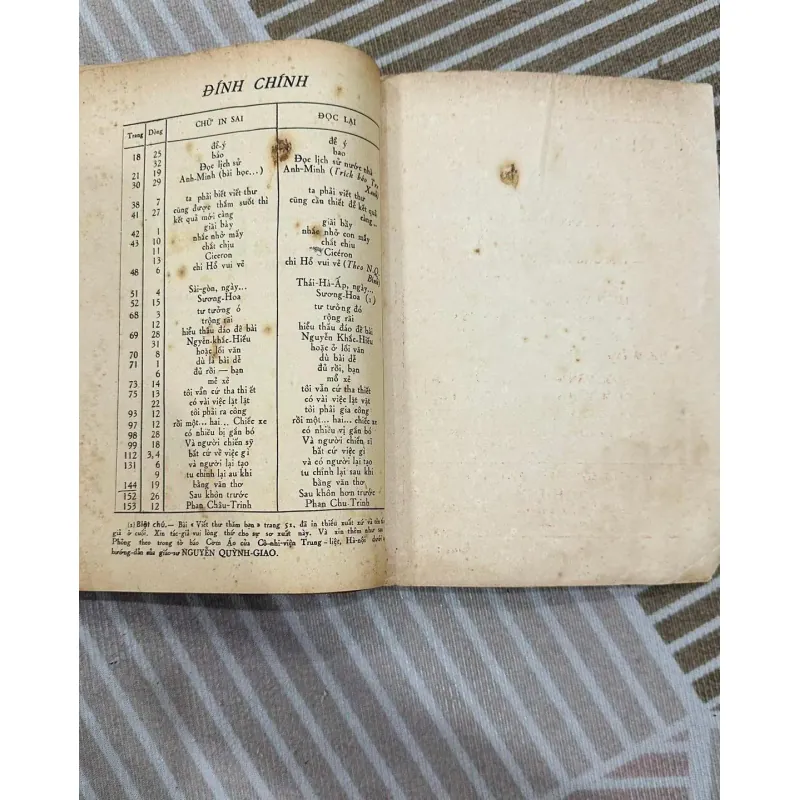 ĐÍNH CHÍNH
Trang Dòng CHỮ IN SAI ĐỌC LẠI
18 25 để.ý để ý
32 báo bao
21 19 Đọc lịch sử Đọc lịch sử nước nhà
30 29 Anh-Minh (bài học...) Anh-Minh (Trích báo
38 7 ta phải biết viết thư ta phải viết thư
41 27 cũng được thấm suốt thì cũng cần thiết để kết quả
kết quả mới càng càng...
42 1 giải bày giãi bày
43 10 nhắc nhở mấy nhắc nhở con mấy
11 chất chịu chắt chịu
13 Cicéron Cicéron
48 6 chi Hồ vui vẻ chi Hồ vui vẻ (Theo N.Q.
51 4 Sài-gòn, ngày... Thái-Hà-Ấp, ngày...
52 15 Sương-Hoa Sương-Hoa (1)
68 3 tư tưởng ỏ tư tưởng đó
12 trộng rãi rộng rãi
69 28 hiểu thấu đáo đề bài hiểu thấu đáo đề bài
31 Ngyễn-khắc-Hiếu Nguyễn Khắc-Hiếu
70 8 hoặc lối văn hoặc ở lối văn
71 1 dù là bài dễ dù bài dễ
6 đủ rồi — bạn đủ rồi, bạn
73 14 mẻ xẻ mổ xẻ
75 13 tôi vẫn cứ tha thi ết tôi vẫn cứ tha thiết
22 có vài việc lạt lặt có vài việc lặt vặt
93 12 tôi phải ra công tôi phải gia công
97 12 rồi một... hai.. Chiếc xe rồi một... hai... chiếc xe
98 28 có nhiều bị gắn bó có nhiều vị gắn bó
99 18 Và người chiến sỹ Và người chiến sĩ
112 3,4 bất cứ về việc gì bất cứ việc gì
131 6 và người lại tạo và có người lại tạo
9 tu chỉnh lại au khi tu chỉnh lại sau khi
144 19 bằng văn thơ bằng văn thơ
152 26 Sau khôn trước Sau khôn hơn trước
153 12 Phan Châu-Trinh Phan Chu-Trinh
(1) Biệt chú.— Bài « Viết thư thăm bạn » trang 52, đã in thiếu xuất xứ và tên
giả ở cuối. Xin tác-giả vui lòng thứ cho sự sơ xuất này. Và xin thêm như
Phỏng theo trong tờ báo Cơm Áo của Cô-nhi-viện Trung-liệt, Hà-nội dưới
hướng-dẫn của giáo-sư NGUYỄN QUỲNH-GIAO.